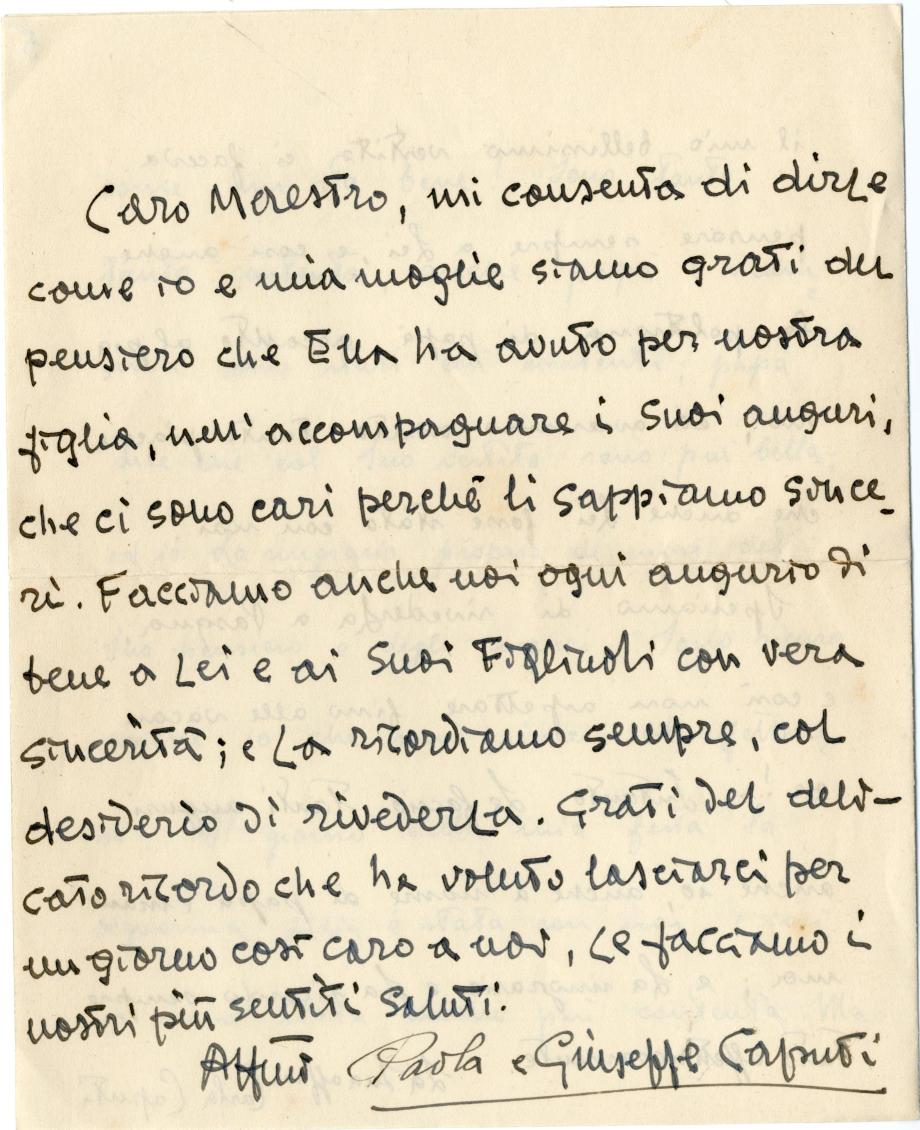 Caro Maestro, mi consenta di dirLe
come io e mia moglie siamo grati del
pensiero che Ella ha avuto per nostra
figlia, nell'accompagnare i Suoi auguri,
che ci sono cari perché li sappiamo since-
ri. Facciamo anche noi ogni augurio di
bene a Lei e ai Suoi Figliuoli con vera
sincerità; e La ricordiamo sempre, col
desiderio di rivederLa. Grati del deli-
cato ricordo che ha voluto lasciarci per
un giorno così caro a noi, Le facciamo i
nostri più sentiti saluti.
Affmi Paola e Giuseppe Caputi